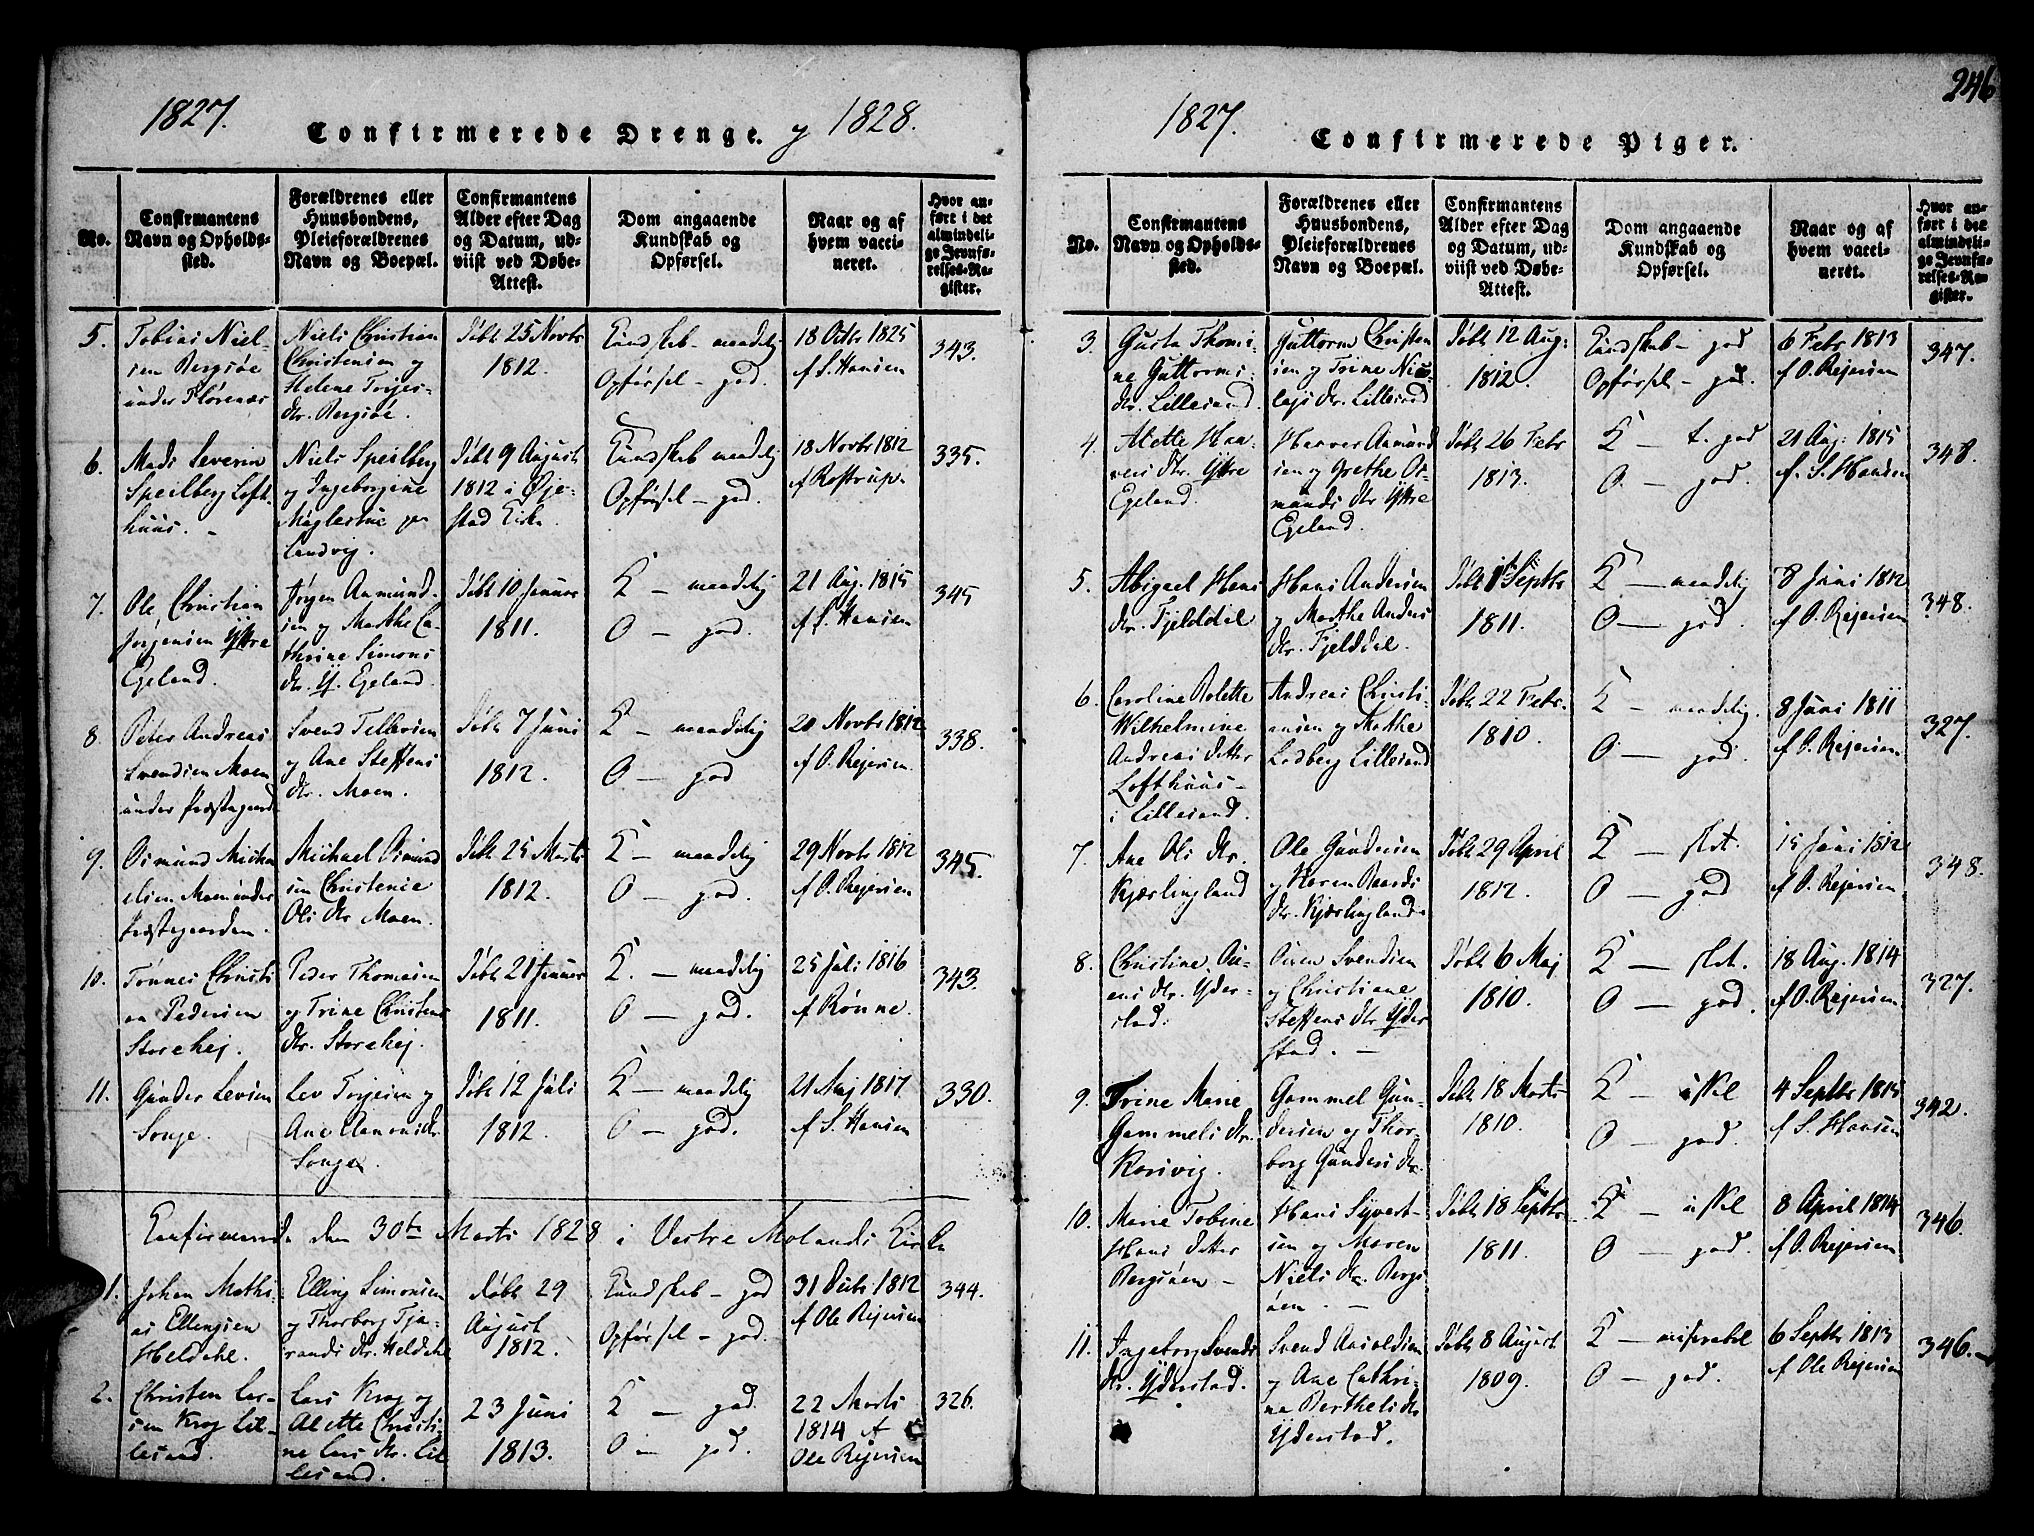 246
1827.
Confirmerede Drenge. y 1828.
No.
Confirmantens
Navn og Opholds-
sted.
Forældrenes eller
Huusbondens,
Pleieforældrenes
Navn og Boepæl.
Confirmantens
Alder efter Dag
og Datum, ud-
viist ved Døbe-
Attest.
Dom angaaende
Kundskab og
Opførsel.
Naar og af
hvem vacci-
neret.
Hvor an-
ført i det
almindeli-
ge Jevnfø-
relses-Re-
gister.
5.
Tobias Niel-
sen Bergsøe
under Florenæs
Niels Christian
Christensen og
Helene Torjes-
dtr. Bergsøe.
Døbt 25 Novbr
1812.
Kundskab – maadelig
Opførsel – god.
18 Octbr 1825
af S. Hansen
343.
6.
Mads Severin
Speilberg Loft-
huus. –
Niels Speilberg
og Ingeborgine
Møglestue paa
Landvig.
Døbt 9 August
1812 i Øje-
stad Kirke.
Kundskab maadelig
Opførsel – god.
18 Novbr 1812
af Rostrup.
335.
7.
Ole Christian
Jørgensen Yttre
Egeland.
Jørgen Aamund-
sen og Marthe Ca-
thrine Simons
dtr. Y. Egeland.
Døbt 10 Januar
1811.
K – maadelig
O – god.
21 Aug. 1815
af S. Hansen
345
8.
Peter Andreas
Svendsen Moen
under Præstegaard
Svend Tellefsen
og Ane Steffens
dtr. Moen.
Døbt 7 Juni
1812.
K – maadelig
O – god
20 Novbr 1812
af O. Rejersen.
338.
9.
Osmund Micha-
elsen Moen under
Præstegaarden.
Michael Osmund
sen Christense
Ols dtr Moen.
Døbt 25 Marts
1812.
K – maadelig
O – god.
29 Novbr 1812
af O. Rejersen
345.
10.
Tønnes Christi-
an Pedersen
Storehej.
Peder Thomasen
og Trine Christens
dtr. Storehej.
Døbt 21 Januar
1811.
K. – maadelig
O – god.
25 Juli 1816
af Rønne.
343.
11.
Gunder Levsen
Songe.
Lev Torjesen og
Ane Aanonsdtr
Songe.
Døbt 12 Juli
1812.
K – maadelig
O – god.
21 Maj 1817
af S. Hansen
330.
Confirmerede den 30te Marts 1828 i Vestre Molands Kirke
1.
Johan Mathi-
as Ellingsen
Heldale.
Elling Simonsen
og Thorborg Tja-
rands dtr. Heldale
Døbt 29
August
1812.
Kundskab – god
Opførsel – god.
31 Decbr 1812
af Ole Rejersen
344.
2.
Christen Lar-
sen Krog Lil-
lesand.
Lars Krog og
Alette Christi-
ne Lars dtr. Lil
lesand.
23 Juni
1813.
K – god.
O – god.
22 Marts
1814 af
Ole Rejersen
326.
1827.
Confirmerede Piger.
No.
Confirmantens
Navn og Opholds-
sted.
Forældrenes eller
Huusbondens,
Pleieforældrenes
Navn og Boepæl.
Confirmantens
Alder efter Dag
og Datum, ud-
viist ved Døbe-
Attest.
Dom angaaende
Kundskab og
Opførsel.
Naar og af
hvem vacci-
neret.
Hvor an-
ført i det
almindeli-
ge Jevnfø-
relses-Re-
gister.
3.
Gusta Thomi-
ne Guttorms-
dtr. Lillesand.
Guttorm Christen
sen og Trine Nico-
lajs dtr. Lillesand
Døbt 12 Aug:
1812.
Kundskab – god
Opførsel – god.
6 Febr 1813
af O. Rejersen
347.
4.
Alette Haa-
vers dtr. Yttre
Egeland.
Haaver Aamund
sen og Grethe Os-
munds dtr Yttre
Egeland.
Døbt 26 Febr
1813.
K – t. god
O. – god.
21 Aug. 1815
af. S. Hansen
348.
5.
Abigael Hans
dtr. Fjelddal
Hans Andersen
og Marthe Anders
dtr. Fjelddal.
Døbt 1 Septbr
1811.
K – maadelig
O – god.
8 Juni 1812
af O. Rejersen
348.
6.
Caroline Bolette
Wilhelmine
Andreas datter
Lofthuus –
i Lillesand.
Andreas Christi-
ansen og Marthe
Lodberg Lillesand
Døbt 22 Febr.
1810.
K – maadelig.
O – god.
8 Juni 1811
af O. Rejersen
327.
7.
Ane Ols dtr.
Kjærlingland
Ole Gundersen
og Karen Baards
dtr. Kjærlingland.
Døbt 29 April
1812.
K – slet.
O – god
15 Juni 1812
af O. Rejersen.
348.
8.
Christine Au-
ens dtr. Yder-
stad.
Auen Svendsen
og Christiane
Steffens dtr Yder
stad. –
Døbt 6 Maj
1810.
K – slet.
O – god.
18 Aug. 1814
af O. Rejersen
327.
9.
Trine Marie
Gammels dtr.
Korsvig.
Gammel Gun-
dersen og Thor-
borg Gunders dtr.
Døbt 18 Marts
1810.
K – uskel
O – god.
4 Septbr 1815
af S. Hansen
342.
10.
Marie Tobine
Hans datter
Bergsøen –
Hans Syvert-
sen og Maren
Niels dtr. Bergs
øen. –
Døbt 18 Septbr
1811.
K – uskel
O – god.
8 April 1814
af O. Rejersen
346.
11.
Ingeborg Svends
dtr. Yderstad.
Svend Aasoldsen
og Ane Cathri-
ne Berthels dtr
Yderstad.
Døbt 8 August
1809.
K – miserabel
O – god.
6 Septbr 1813
af Ole Rejersen
346.